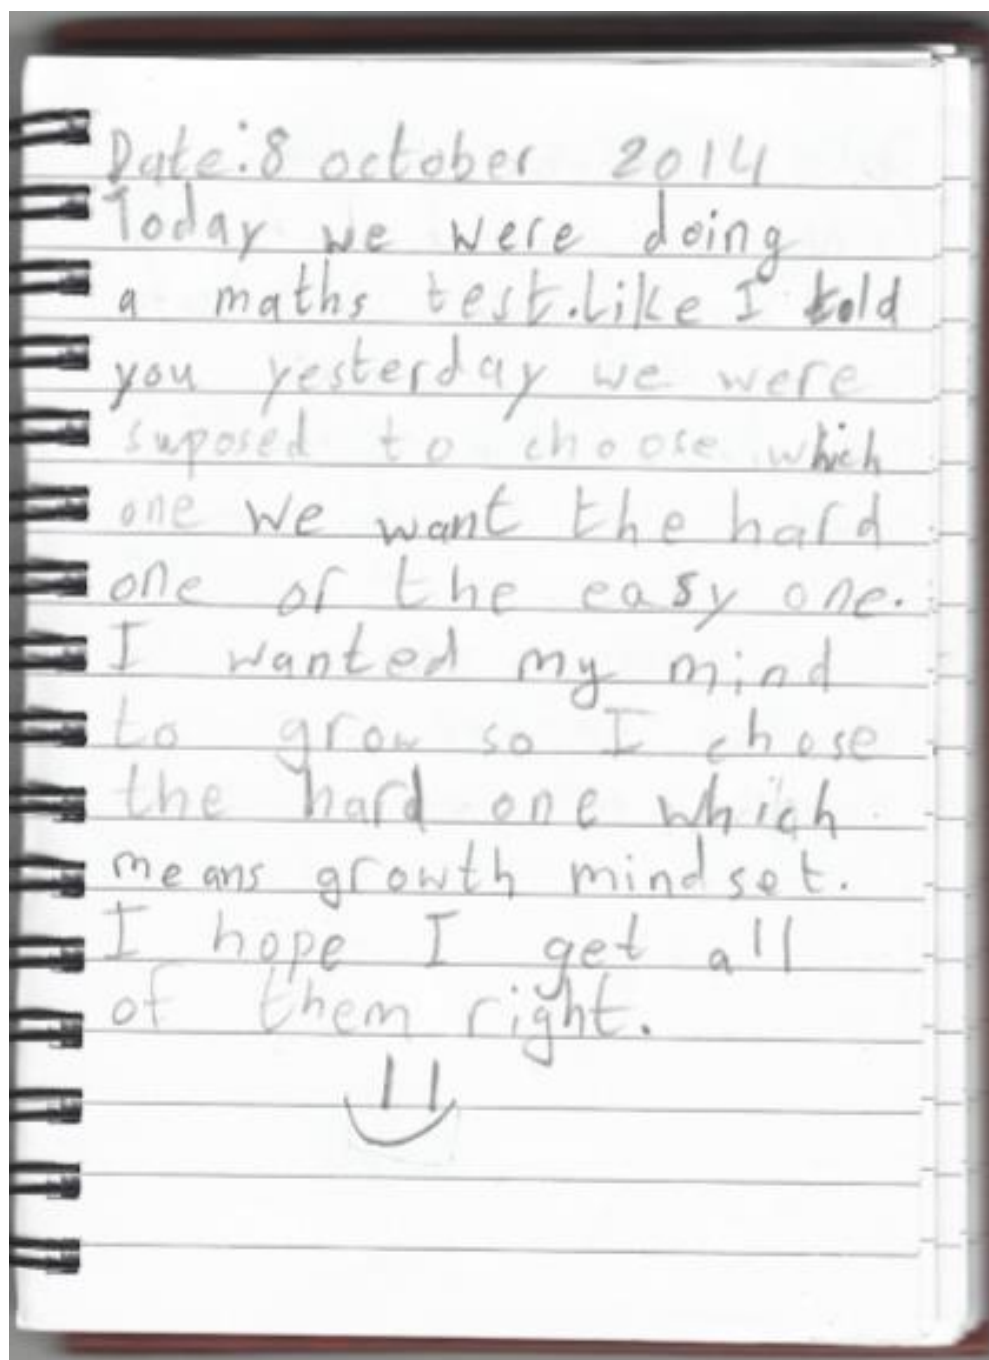 Date:8 october 2014
Today we were doing
a maths test.Like I told
you yesterday we were
suposed to choose which
one we want the hard
one or the easy one.
I wanted my mind
to grow so I chose
the hard one which
means growth mindset.
I hope I get all
of them right.